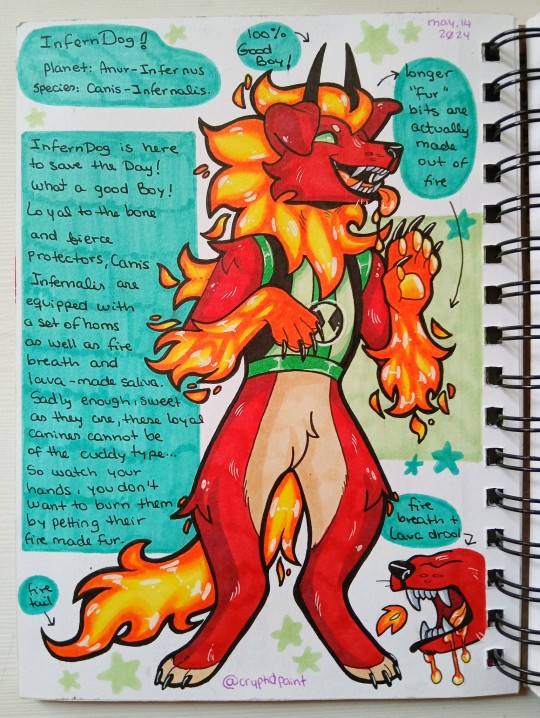 InfernDog!
Planet: Anur-Infernus
Species: Canis-Infernalis.
100%
Good
Boy!
may.14
2024
longer
"fur"
bits are
actually
made
out of
fire
InfernDog is here
to save the Day!
What a good Boy!
Loyal to the bone
and fierce
protectors, Canis
Infernalis are
equipped with
a set of horns
as well as fire
breath and
lava-made saliva.
Sadly enough, sweet
as they are, these loyal
canines cannot be
of the cuddy type...
So watch your
hands, you don't
want to burn them
by petting their
fire made fur.
fire
tail
fire
breath +
Lava drool
@cryptdpaint